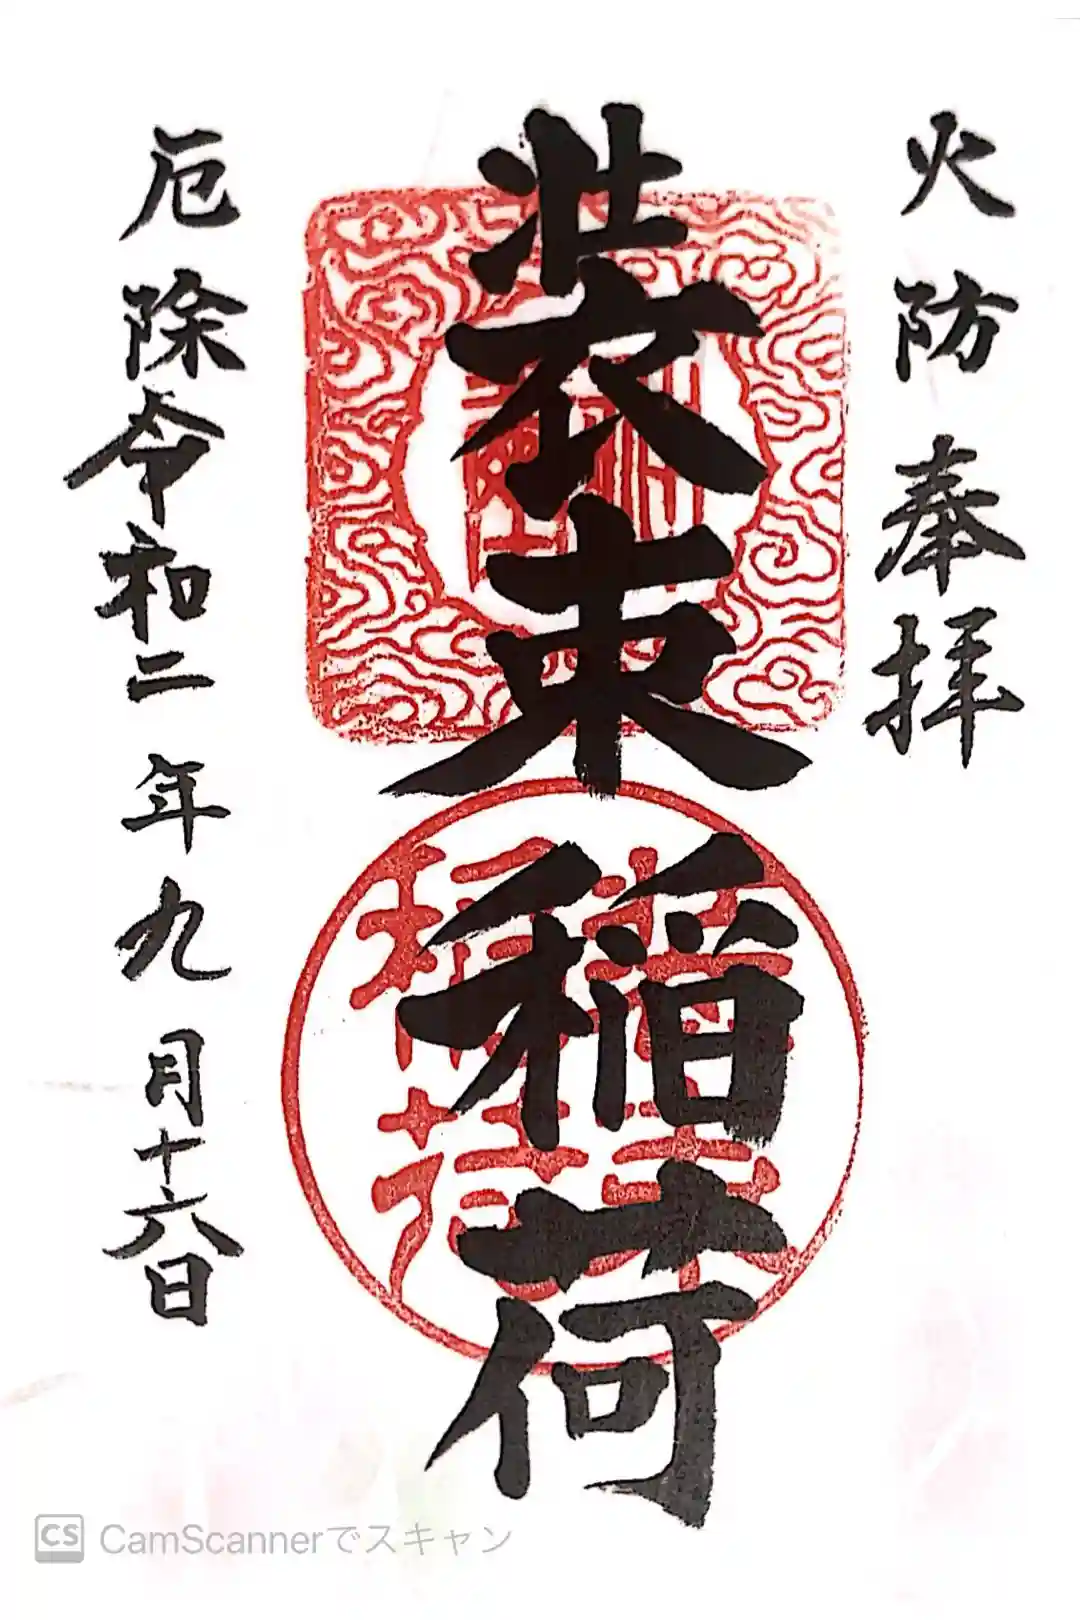 火防奉拝
装束稲荷
厄除令和二年九月十六日
CS CamScannerでスキャン